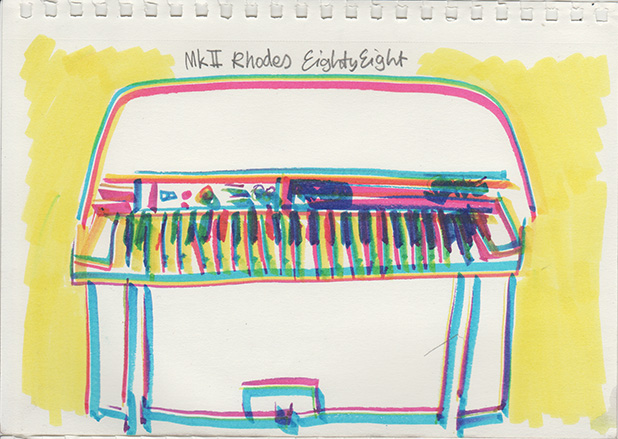 MkII Rhodes EightyEight